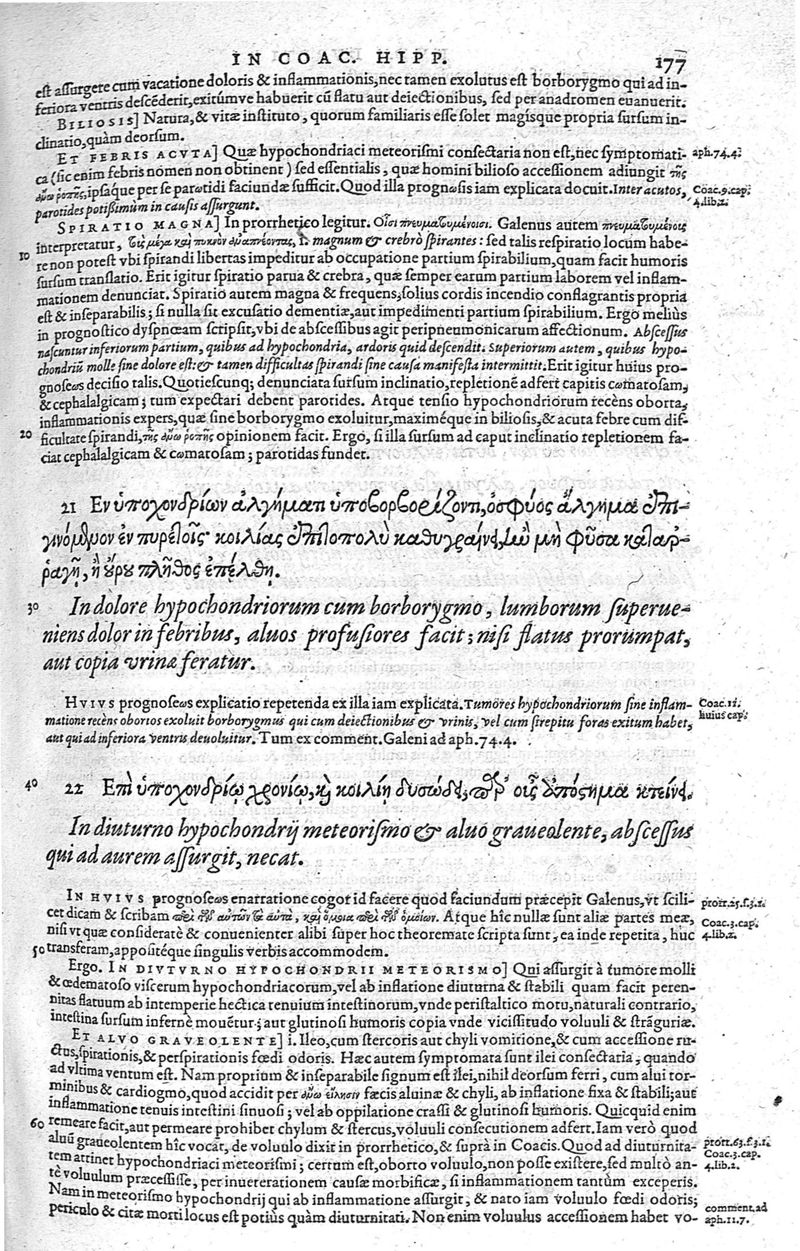 IN COAC. HIPP. 177
est assurgere cum vacatione doloris & inflammationis, nec tamen exolutus est borborygmo qui ad in-
feriora ventris descēderit, exitúmve habuerit cū flatu aut deiectionibus, sed per anadromen euanuerit.
BILIOSIS] Natura, & vitæ instituto, quorum familiaris esse solet magísque propria sursum in-
clinatio, quàm deorsum.
ET FEBRIS ACVTA] Quæ hypochondriaci meteorismi consectaria non est, nec symptomati- aph.74.4.
ca (sic enim febris nomen non obtinent) sed essentialis, quæ homini bilioso accessionem adiungit τῆς
ἄνω ῥοπῆς, ipsaque per se parotidi faciundæ sufficit. Quod illa prognωsis iam explicata docuit. Inter acutos, Coac.9.cap.
parotides potißimùm in causis assurgunt. 4.lib.2.
SPIRATIO MAGNA] In prorrhetico legitur. Οἷσι πνευματουμένοισι. Galenus autem πνευματουμένοις
interpretatur, τοῖς μέγα καὶ πυκνὸν ἀναπνέοντας, i. magnum & crebrò spirantes: sed talis respiratio locum habe-
10 re non potest vbi spirandi libertas impeditur ab occupatione partium spirabilium, quam facit humoris
sursum translatio. Erit igitur spiratio parua & crebra, quæ semper earum partium laborem vel inflam-
mationem denunciat. Spiratio autem magna & frequens, solius cordis incendio conflagrantis propria
est & inseparabilis; si nulla sit excusatio dementiæ, aut impedimenti partium spirabilium. Ergo meliùs
in prognostico dyspnœam scripsit, vbi de abscessibus agit peripneumonicarum affectionum. Abscessus
nascuntur inferiorum partium, quibus ad hypochondria, ardoris quid descendit. Superiorum autem, quibus hypo-
chondriū molle sine dolore est: & tamen difficultas spirandi sine causa manifesta intermittit. Erit igitur huius pro-
gnoseωs decisio talis. Quotiescunq; denunciata sursum inclinatio, repletionē adfert capitis cωmatosam,
& cephalalgicam; tum expectari debent parotides. Atque tensio hypochondriorum recèns oborta,
inflammationis expers, quæ sine borborygmo exoluitur, maximéque in biliosis, & acuta febre cum dif-
20 ficultate spirandi, τῆς ἄνω ῥοπῆς opinionem facit. Ergo, si illa sursum ad caput inclinatio repletionem fa-
ciat cephalalgicam & cωmatosam; parotidas fundet.
21 Εν ὑποχονδρίων ἀλγήματι ὑποβορβορίζοντι, ὀσφύος ἄλγημα ἐπι-
γινόμενον ἐν πυρετοῖς· κοιλίας ἐπιτοπολὺ καθυγραίνει, ἢν μὴ φῦσα καταρ-
ραγῇ, ἢ οὔρου πλῆθος ἐπέλθῃ.
30 In dolore hypochondriorum cum borborygmo, lumborum superue-
niens dolor in febribus, aluos profusiores facit; nisi flatus prorumpat,
aut copia vrinæ feratur.
HVIVS prognoseωs explicatio repetenda ex illa iam explicata. Tumores hypochondriorum sine inflam- Coac.11.
matione recèns obortos exoluit borborygmus qui cum deiectionibus & vrinis, vel cum strepitu foras exitum habet, huius cap.
aut qui ad inferiora ventris deuoluitur. Tum ex comment. Galeni ad aph.74.4.
40 22 Επὶ ὑποχονδρίῳ χρονίῳ, καὶ κοιλίῃ δυσώδει, παρ' οὖς ἀπόστημα κτείνει.
In diuturno hypochondrij meteorismo & aluo graueolente, abscessus
qui ad aurem assurgit, necat.
IN HVIVS prognoseωs enarratione cogor id facere quod faciundum præcepit Galenus, vt scili- prorr.25.s.3.1.
cet dicam & scribam περὶ τῶν αὐτῶν τὰ αὐτὰ, καὶ ὅμοια περὶ τῶν ὁμοίων. Atque hîc nullæ sunt aliæ partes meæ, Coac.3.cap.
nisi vt quæ consideratè & conuenienter alibi super hoc theoremate scripta sunt, ea inde repetita, huc 4.lib.2.
50 transferam, appositéque singulis verbis accommodem.
Ergo. IN DIVTVRNO HYPOCHONDRII METEORISMO] Qui assurgit à tumore molli
& œdematoso viscerum hypochondriacorum, vel ab inflatione diuturna & stabili quam facit peren-
nitas flatuum ab intemperie hectica tenuium intestinorum, vnde peristaltico motu, naturali contrario,
intestina sursum infernè mouētur; aut glutinosi humoris copia vnde vicissitudo voluuli & strāguriæ.
ET ALVO GRAVEOLENTE] i. Ileo, cum stercoris aut chyli vomitione, & cum accessione ru-
ctus, spirationis, & perspirationis fœdi odoris. Hæc autem symptomata sunt ilei consectaria, quando
ad vltima ventum est. Nam proprium & inseparabile signum est ilei, nihil deorsum ferri, cum alui tor-
minibus & cardiogmo, quod accidit per ἄνω εἴλησιν fæcis aluinæ & chyli, ab inflatione fixa & stabili; aut
inflammatione tenuis intestini sinuosi; vel ab oppilatione crassi & glutinosi humoris. Quicquid enim
60 remeare facit, aut permeare prohibet chylum & stercus, voluuli consecutionem adfert. Iam verò quod
aluū graueolentem hîc vocat, de voluulo dixit in prorrhetico, & suprà in Coacis. Quod ad diuturnita- prorr.63.s.3.1.
tem attinet hypochondriaci meteorismi; certum est, oborto voluulo, non posse existere, sed multò an- Coac.3.cap.
tè voluulum præcessisse, per inueterationem causæ morbificæ, si inflammationem tantùm exceperis. 4.lib.2.
Nam in meteorismo hypochondrij qui ab inflammatione assurgit, & nato iam voluulo fœdi odoris;
periculo & citæ morti locus est potiùs quàm diuturnitati. Non enim voluulus accessionem habet vo- comment.ad
aph.11.7.